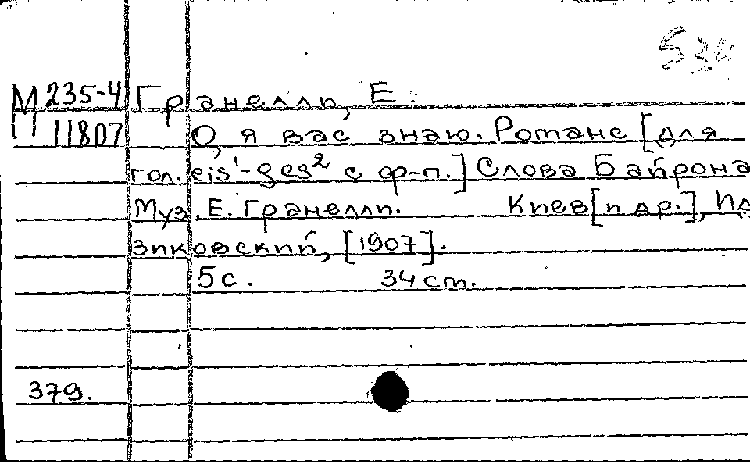 534
М 235-4 Гранелли, Е.
11807 О, я вас знаю. Романс [для
гол. eis¹-ges² с ф-п.] Слова Байрона
Муз. Е. Гранелли. Киев [и др.], Ид
зиковский, [1907].
5 с. 34 см.
379.